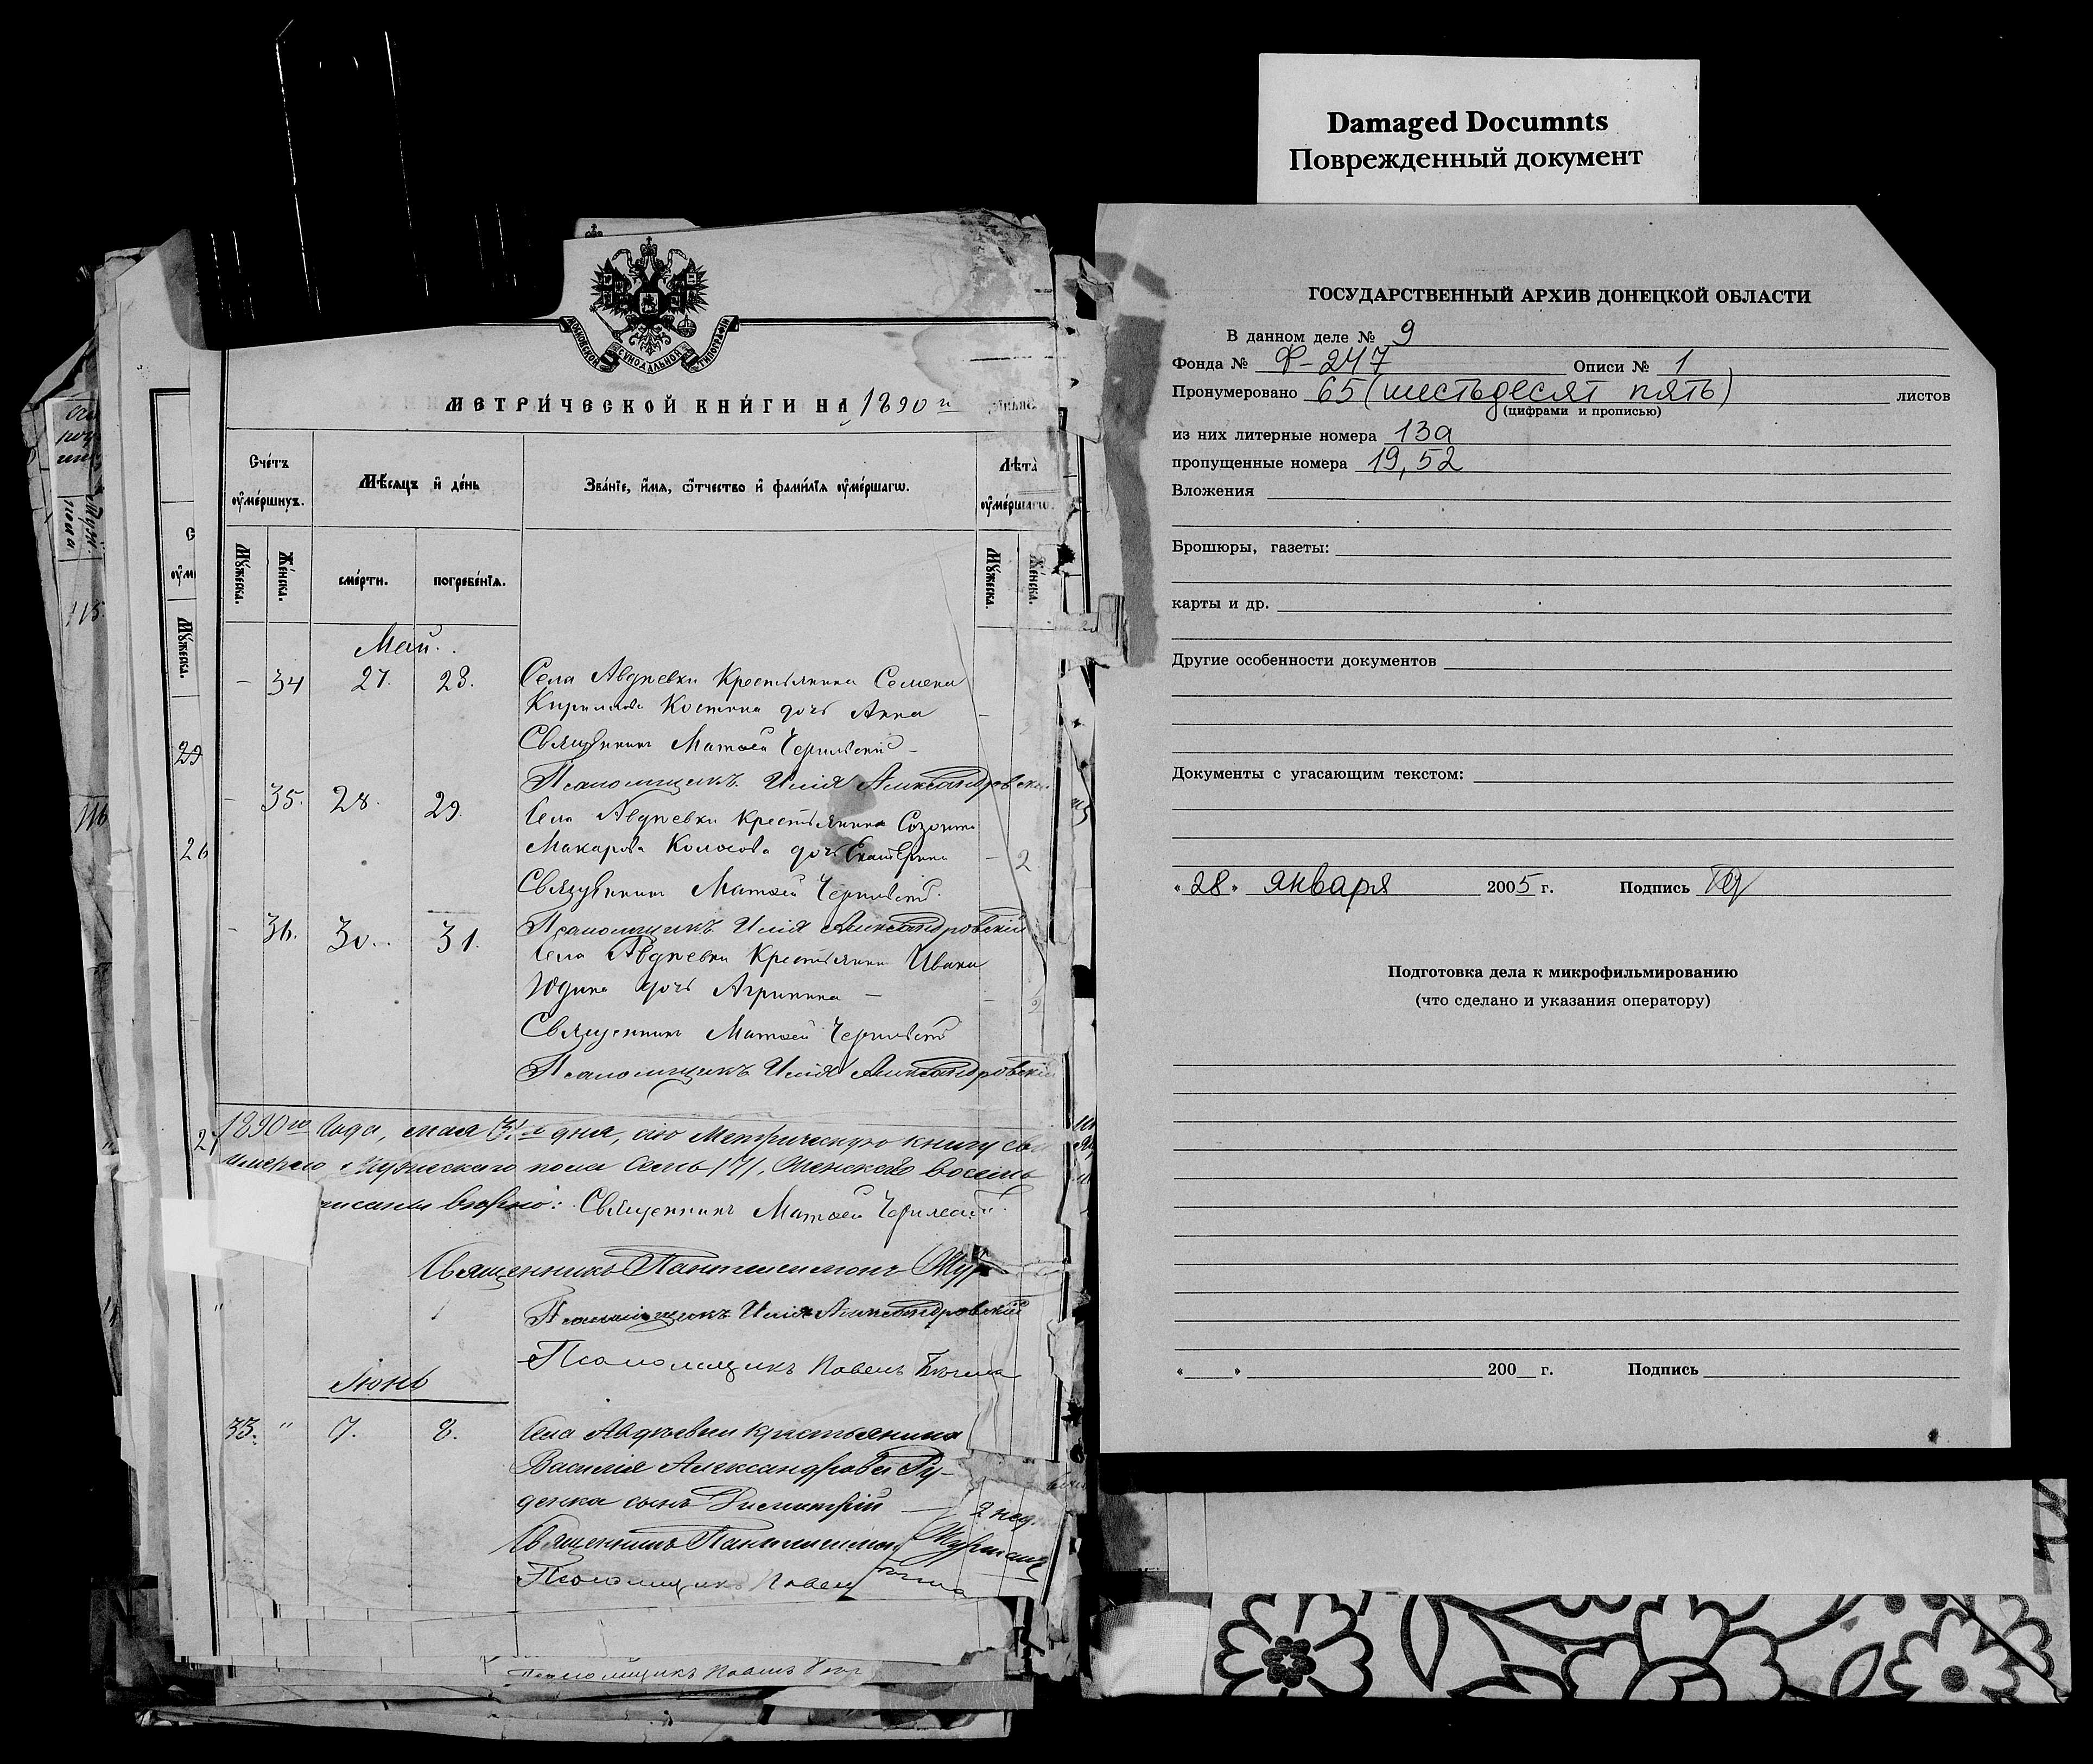 Damaged Documnts
Поврежденный документ
МОСКОВСКОЙ СѴНОДАЛЬНОЙ ТИПОГРАФІИ
МЕТРИ́ЧЕСКОЙ КНИ́ГИ НА 1890 й
Сче́тъ ᲂу҆ме́ршихъ.
Мѣ́сяцъ и҆ де́нь
Зва́нїе, и҆́мѧ, ѻ҆́тчество и҆ фами́лїѧ ᲂу҆ме́ршагѡ.
Лѣ́та ᲂу҆ме́ршагѡ.
Мꙋ́жеска.
Же́нска.
сме́рти.
погребе́нїѧ.
Мꙋ́жеска.
Же́нска.
Май.
– 34 27. 28. Села Авдѣевки Крестьянина Семена
Кирилова Костина дочь Анна –
Священникъ Матѳей Чернявскій –
Псаломщикъ Илія Александровскій
– 35. 28. 29. Села Авдѣевки Крестьянина Созонта
Макарова Колосова дочь Екатерина – 2
Священникъ Матѳей
Псаломщикъ Илія Александровскій
– 36. 30. 31. Села Авдѣевки Крестьянина Ивана
Юдина дочь Агрипина – – 2
Священникъ Матѳей
Псаломщикъ Илія Александровскій
1890го Года, мая 31го дня, сію Метрическую книгу
мужескаго пола Семь /7/, Женскаго восемь
вѣрно: Священникъ Матѳей
Священникъ Пантелеимонъ
Псаломщикъ Илія Александровскій
Псаломщикъ Павелъ
Іюнь
33. " 7. 8. Села Авдѣевки крестьянина
Василія Александрова Ру-
денка сынъ Димитрій – 2 нед.
Священникъ Пантелеимонъ
Псаломщикъ Павелъ
Псаломщикъ Павелъ
29
26
27
115.
116
ГОСУДАРСТВЕННЫЙ АРХИВ ДОНЕЦКОЙ ОБЛАСТИ
В данном деле № 9
Фонда № Ф-247 Описи № 1
Пронумеровано 65 (шестьдесят пять) листов
(цифрами и прописью)
из них литерные номера 13а
пропущенные номера 19, 52
Вложения
Брошюры, газеты:
карты и др.
Другие особенности документов
Документы с угасающим текстом:
« 28 » января 2005 г. Подпись
Подготовка дела к микрофильмированию
(что сделано и указания оператору)
« » 200 г. Подпись